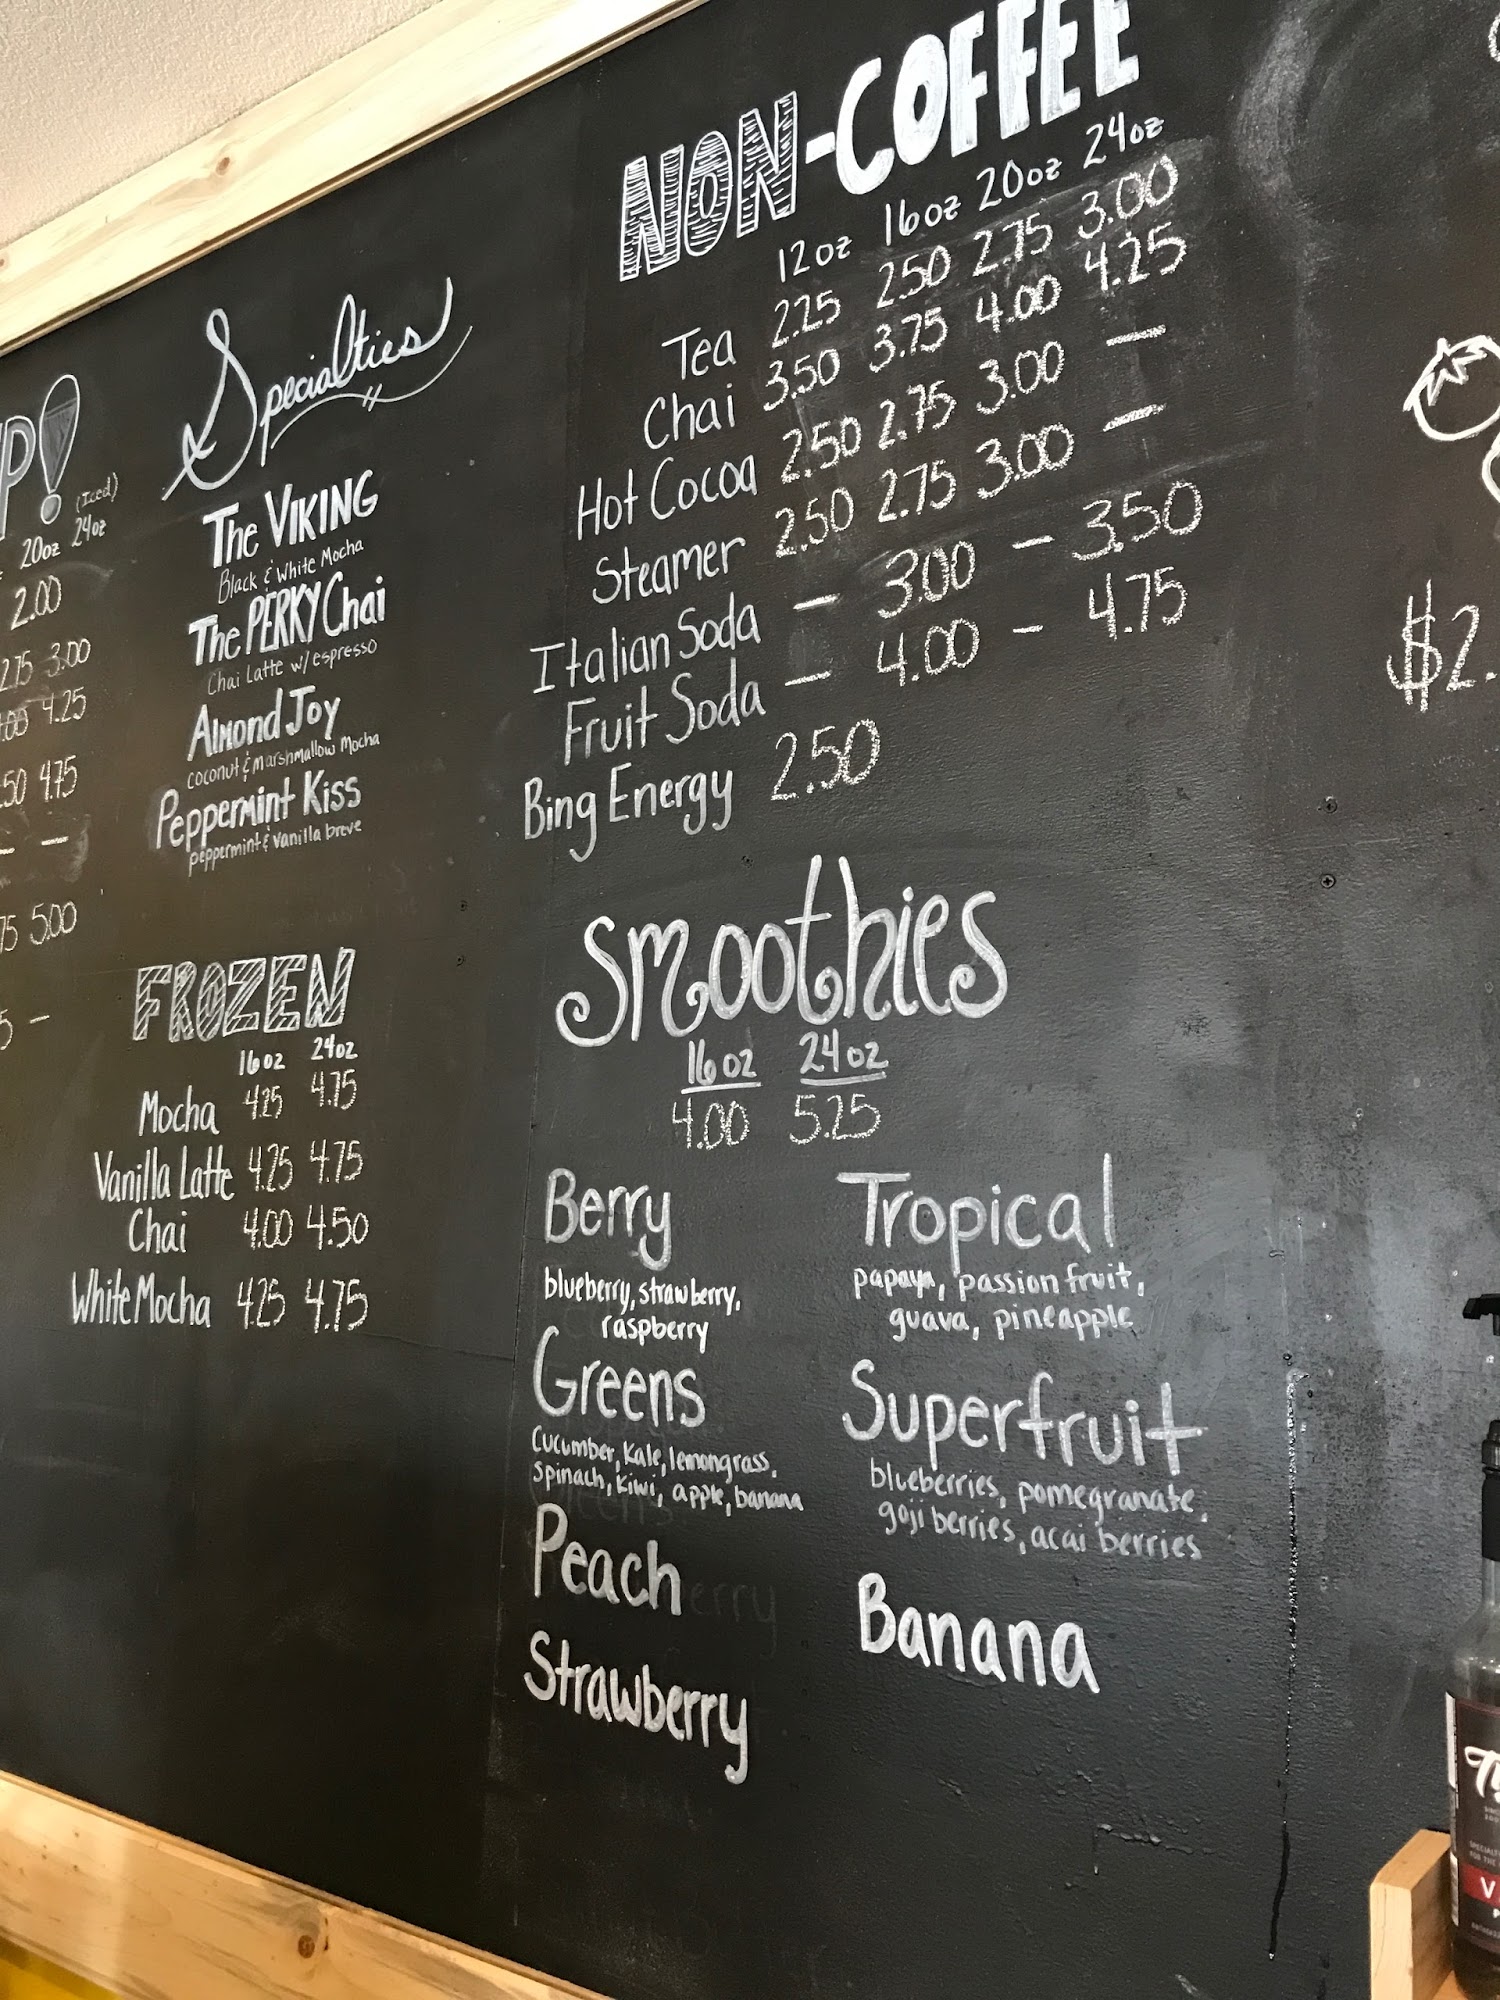 P!
(Iced)
20oz 24oz
2.00
2.75 3.00
4.00 4.25
.50 4.75
— —
.75 5.00
5 —
Specialties
The VIKING
Black & White Mocha
The PERKY Chai
Chai Latte w/ espresso
Almond Joy
coconut & marshmallow Mocha
Peppermint Kiss
peppermint & vanilla breve
FROZEN
16oz 24oz
Mocha 4.25 4.75
Vanilla Latte 4.25 4.75
Chai 4.00 4.50
White Mocha 4.25 4.75
NON-COFFEE
12oz 16oz 20oz 24oz
Tea 2.25 2.50 2.75 3.00
Chai 3.50 3.75 4.00 4.25
Hot Cocoa 2.50 2.75 3.00 —
Steamer 2.50 2.75 3.00 —
Italian Soda — 3.00 — 3.50
Fruit Soda — 4.00 — 4.75
Bing Energy 2.50
Smoothies
16oz 24oz
4.00 5.25
Berry
blueberry, strawberry,
raspberry
Greens
cucumber, kale, lemongrass,
spinach, kiwi, apple, banana
Peach
Strawberry
Tropical
papaya, passion fruit,
guava, pineapple
Superfruit
blueberries, pomegranate,
goji berries, acai berries
Banana
$2.